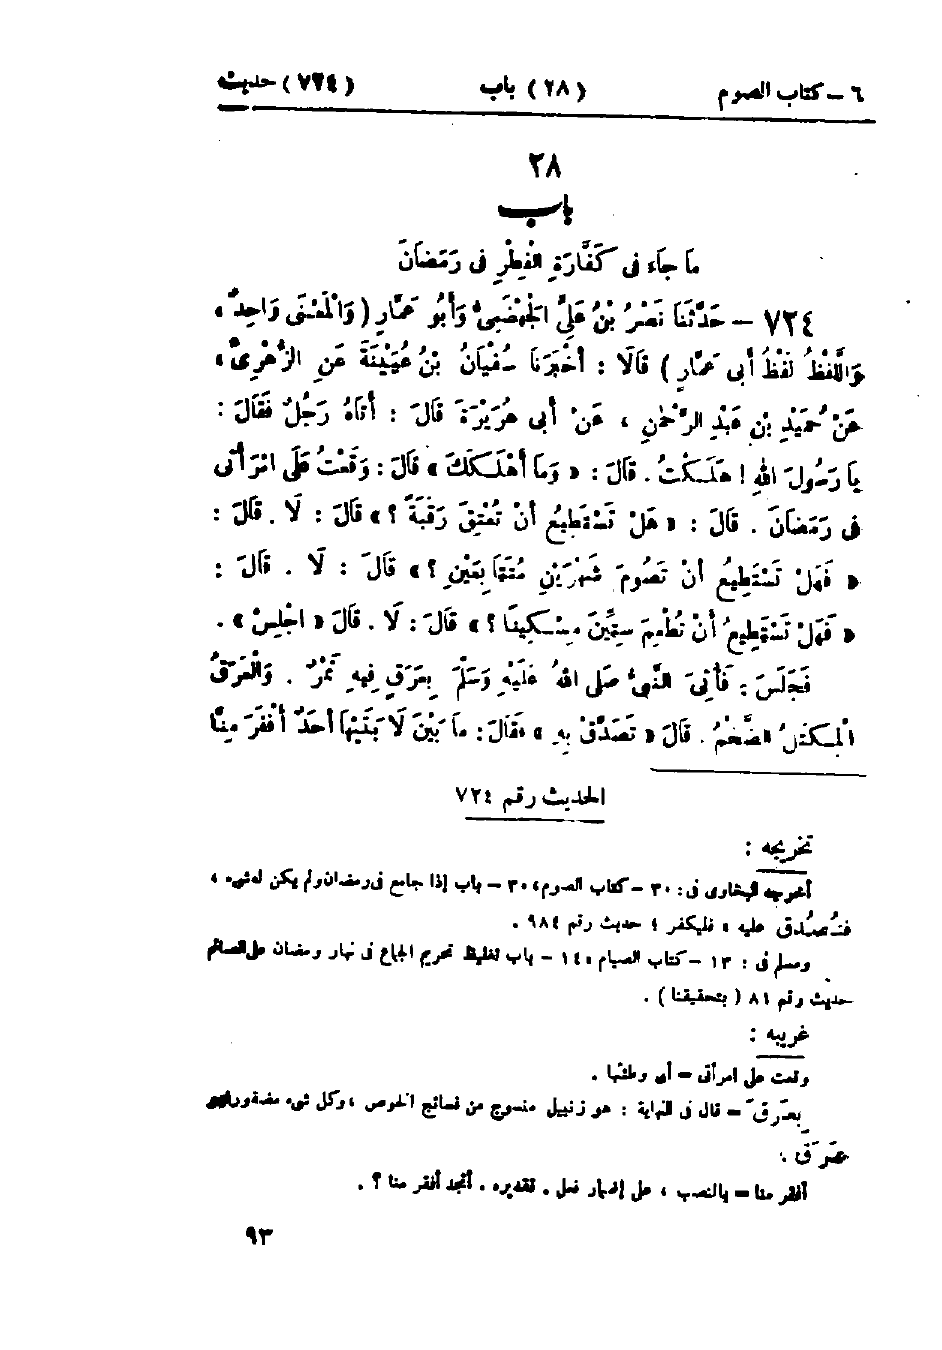 ٦ – كتاب الصوم (٢٨) باب (٧٢٤) حديث
٢٨
باب
مَا جَاء فى كَفَّارَةِ الْفِطْرِ فى رَمَضَانَ
٧٢٤ – حَدَّثَنَا نَصْرُ بْنُ عَلِيٍّ الْجَهْضَمِيُّ وَأَبُو عَمَّارٍ (وَالْمَعْنَى وَاحِدٌ،
وَاللَّفْظُ لَفْظُ أَبى عَمَّارٍ) قَالَا : أَخْبَرَنَا سُفْيَانُ بْنُ عُيَيْنَةَ عَنِ الزُّهْرِىِّ،
عَنْ حُمَيْدِ بْنِ عَبْدِ الرَّحْمٰنِ ، عَنْ أَبى هُرَيْرَةَ قَالَ : أَتَاهُ رَجُلٌ فَقَالَ :
يَا رَسُولَ اللهِ ! هَلَكْتُ . قَالَ : « وَمَا أَهْلَكَكَ » قَالَ : وَقَعْتُ عَلَى امْرَأَتى
فى رَمَضَانَ . قَالَ : « هَلْ تَسْتَطِيعُ أَنْ تُعْتِقَ رَقَبَةً ؟ » قَالَ : لَا . قَالَ :
« فَهَلْ تَسْتَطِيعُ أَنْ تَصُومَ شَهْرَيْنِ مُتَتَابِعَيْنِ ؟ » قَالَ : لَا . قَالَ :
« فَهَلْ تَسْتَطِيعُ أَنْ تُطْعِمَ سِتِّينَ مِسْكِينًا ؟ » قَالَ : لَا . قَالَ « اجْلِسْ » .
فَجَلَسَ : فَأُتِىَ النَّبِىُّ صَلَى اللهُ عَلَيْهِ وَسَلَّمَ بِعَرَقٍ فِيهِ تَمْرٌ . وَالْعَرَقُ
الْمِكْتَلُ الضَّخْمُ . قَالَ « تَصَدَّقْ بِهِ » فَقَالَ : مَا بَيْنَ لَا بَتَيْهَا أَحَدٌ أَفْقَرَ مِنَّا
الحديث رقم ٧٢٤
تخريجه :
أخرجه البخارى فى : ٣٠ – كتاب الصوم ، ٣٠ – باب إذا جامع فى رمضان ولم يكن له شىء ،
فتُصُدق عليه ، فليكفر ؛ حديث رقم ٩٨٤ .
ومسلم فى : ١٣ – كتاب الصيام ، ١٤ – باب تغليظ تحريم الجماع فى نهار رمضان على الصائم
حديث رقم ٨١ (بتحقيقنا) .
غريبه :
وقعت على امرأتى – أى وطئتها .
بِعَرَقٍ – قال فى النهاية : هو زنبيل منسوج من نسائج الخوص ، وكل شىء مضفور فهو
عَرَق .
أفقر منا – بالنصب ، على إضمار فعل . تقديره . أتجد أفقر منا ؟ .
٩٣